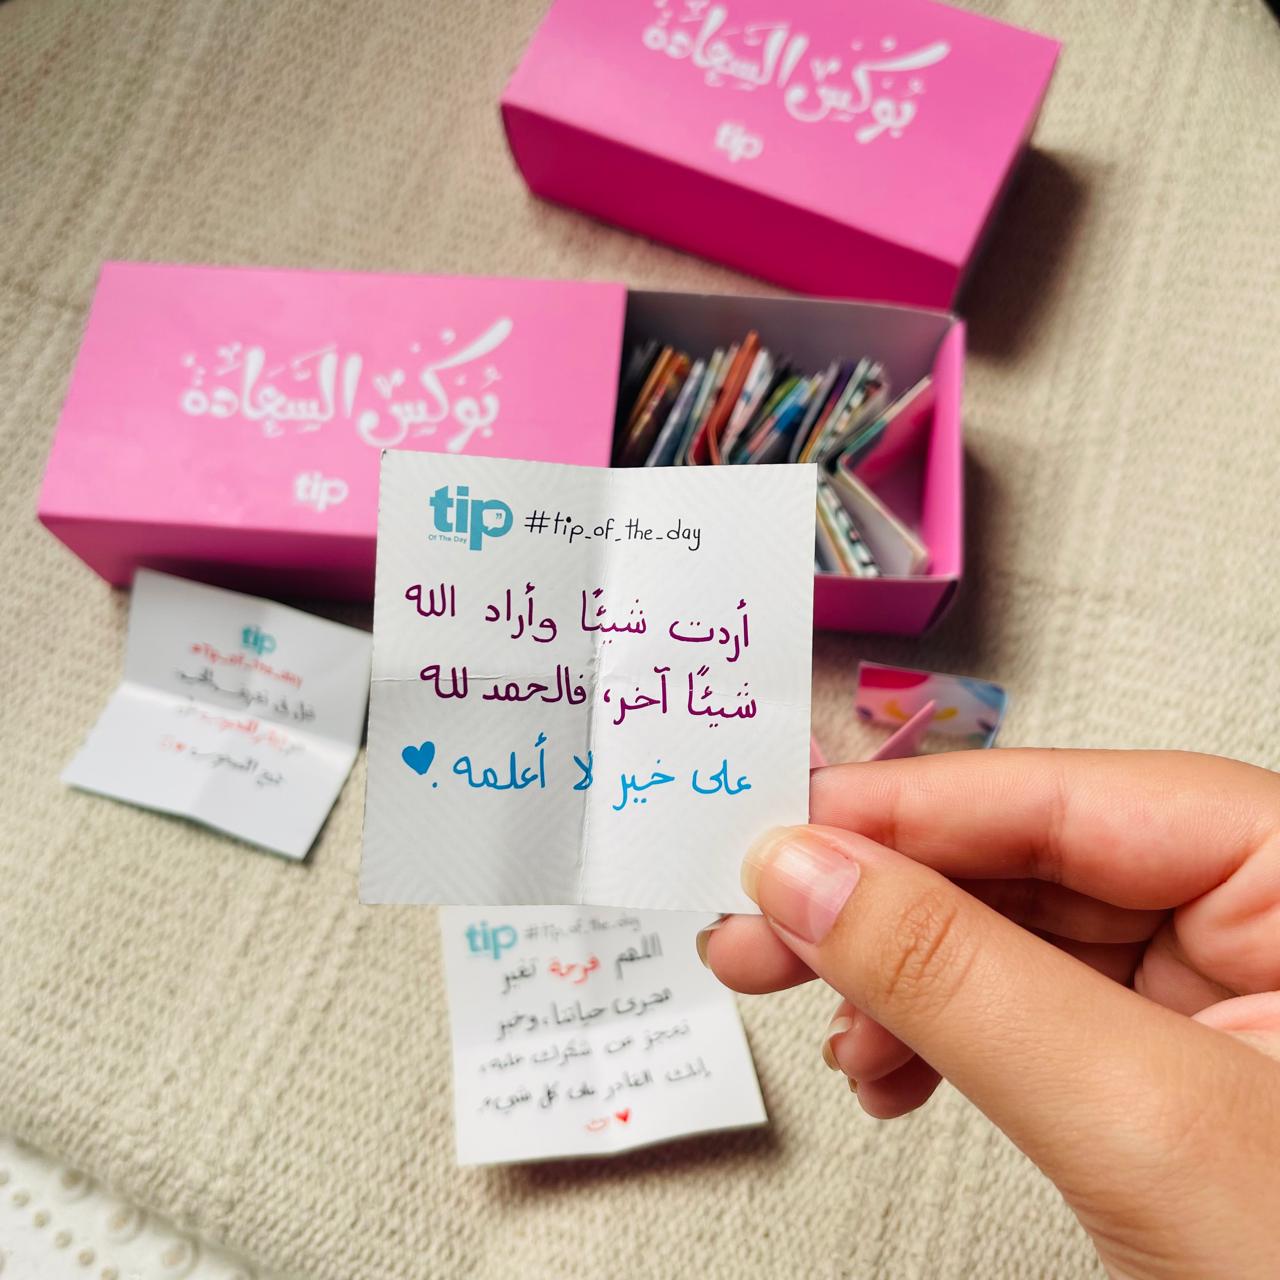 بُوكْيسْ السَّعَادَةْ
tip
بُوكْيسْ السَّعَادَةْ
tip
tip #tip_of_the_day
Of The Day
أردت شيئًا وأراد الله
شيئًا آخر، فالحمد لله
على خير لا أعلمه .
tip
#tip_of_the_day
tip #tip_of_the_day
اللهم فرحة تغير
مجرى حياتنا، وخير
نعجز عن شكرك عليه،
إنك القادر على كل شيء.